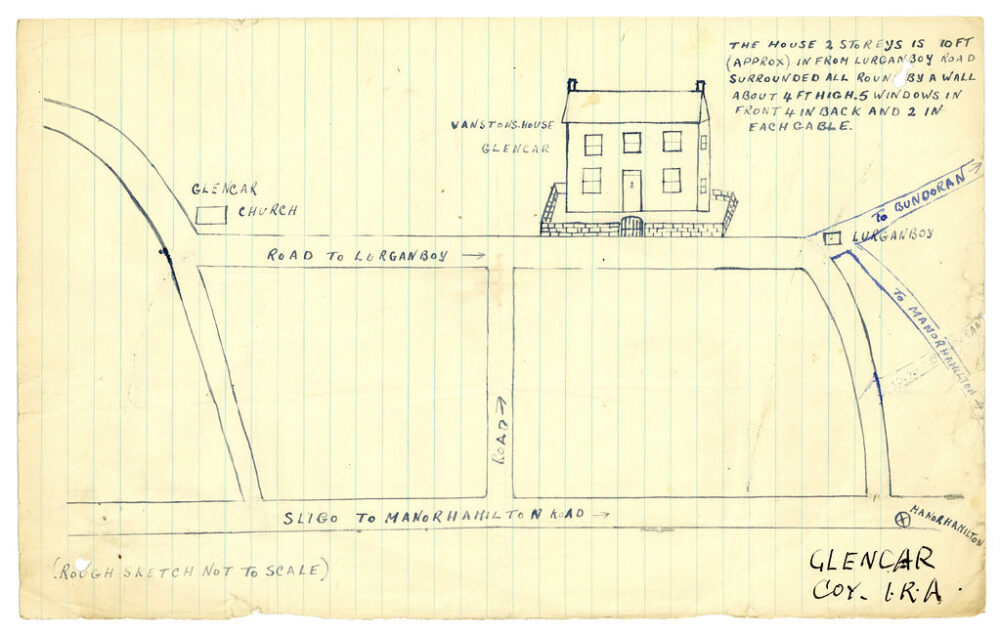 THE HOUSE 2 STOREYS IS 10FT
(APPROX) IN FROM LURGANBOY ROAD
SURROUNDED ALL ROUND BY A WALL
ABOUT 4 FT HIGH. 5 WINDOWS IN
FRONT 4 IN BACK AND 2 IN
EACH GABLE.
VANSTONS. HOUSE
GLENCAR
GLENCAR
CHURCH
TO BUNDORAN
LURGANBOY
ROAD TO LURGANBOY
TO MANORHAMILTON
ROAD
SLIGO TO MANORHAMILTON ROAD
MANORHAMILTON
(ROUGH SKETCH NOT TO SCALE)
GLENCAR
COY. I.R.A.